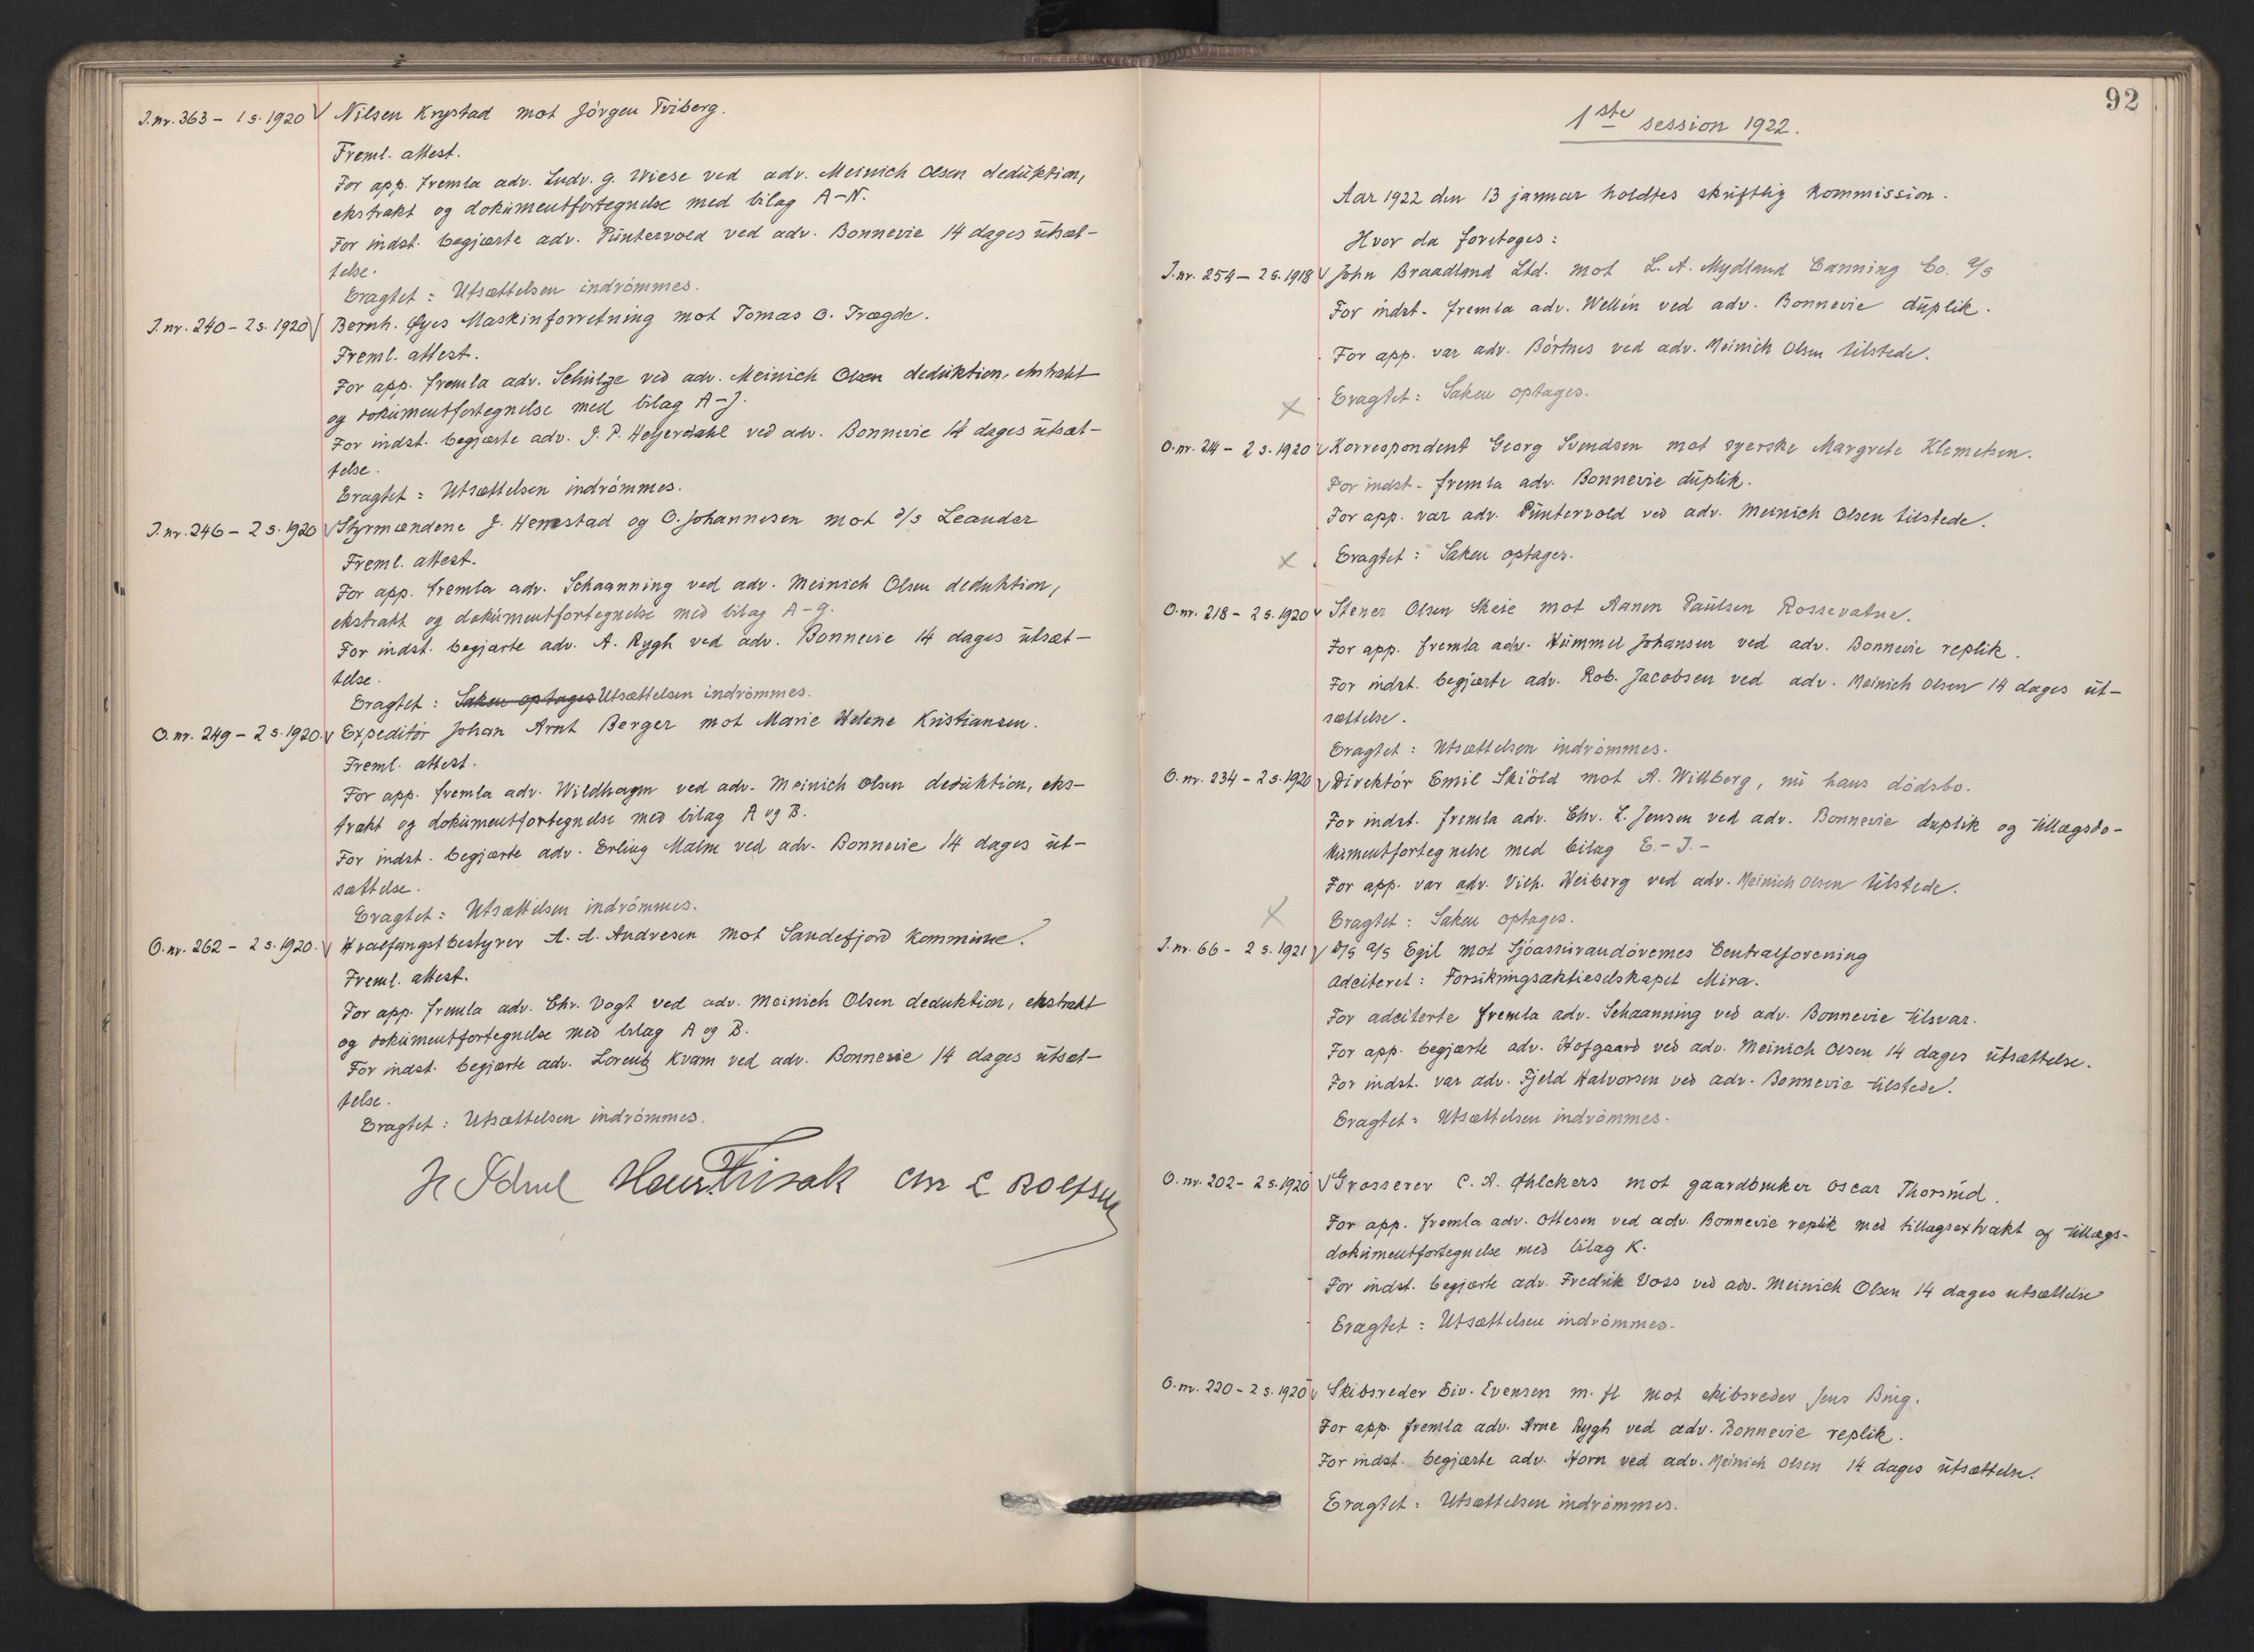 J.nr. 363 – 1 s. 1920 Nilsen Krystad mot Jörgen Tviberg.
Freml. attest.
For app. fremla adv. Ludv. G. Wiese ved adv. Meinich Olsen deduktion,
ekstrakt og dokumentfortegnelse med bilag A–N.
For indst. begjærte adv. Püntervold ved adv. Bonnevie 14 dages utsæt-
telse.
Eragtet: Utsættelsen indrömmes.
J.nr. 240 – 2 s. 1920 Bernh. Øyes Maskinforretning mot Tomas O. Trægde.
Freml. attest.
For app. fremla adv. Schulze ved adv. Meinich Olsen deduktion, ekstrakt
og dokumentfortegnelse med bilag A–J.
For indst. begjærte adv. J. P. Heyerdahl ved adv. Bonnevie 14 dages utsæt-
telse.
Eragtet: Utsættelsen indrömmes.
J.nr. 246 – 2 s. 1920 Styrmændene J. Hemstad og O. Johannesen mot d/s Leander
Freml. attest.
For app. fremla adv. Schaanning ved adv. Meinich Olsen deduktion,
ekstrakt og dokumentfortegnelse med bilag A–G.
For indst. begjærte adv. A. Rygh ved adv. Bonnevie 14 dages utsæt-
telse.
Eragtet: Saken optages Utsættelsen indrömmes.
O.nr. 249 – 2 s. 1920. Expeditör Johan Arnt Berger mot Marie Helene Kristiansen.
Freml. attest.
For app. fremla adv. Wildhagen ved adv. Meinich Olsen deduktion, eks-
trakt og dokumentfortegnelse med bilag A og B.
For indst. begjærte adv. Erling Malm ved adv. Bonnevie 14 dages ut-
sættelse.
Eragtet: Utsættelsen indrömmes.
O.nr. 262 – 2 s. 1920. Hvalfangstbestyrer A. A. Andresen mot Sandefjord kommune.
Freml. attest.
For app. fremla adv. Chr. Vogt ved adv. Meinich Olsen deduktion, ekstrakt
og dokumentfortegnelse med bilag A og B.
For indst. begjærte adv. Lorentz Kvam ved adv. Bonnevie 14 dages utsæt-
telse.
Eragtet: Utsættelsen indrömmes.
92
1ste session 1922.
Aar 1922 den 13 januar holdtes skriftlig kommission.
Hvor da foretoges:
J.nr. 254 – 2 s. 1918 John Braadland Ltd. mot L. A. Mydland Canning Co. a/s
For indst. fremla adv. Wellén ved adv. Bonnevie duplik.
For app. var adv. Börtnes ved adv. Meinich Olsen tilstede.
Eragtet: Saken optages.
O.nr. 214 – 2 s. 1920 Korrespondent Georg Svendsen mot syerske Margrete Klemetsen.
For indst. fremla adv. Bonnevie duplik.
For app. var adv. Püntervold ved adv. Meinich Olsen tilstede.
Eragtet: Saken optages.
O.nr. 218 – 2 s. 1920 Stener Olsen Skeie mot Aanen Paulsen Rossevatne.
For app. fremla adv. Hümmel Johansen ved adv. Bonnevie replik.
For indst. begjærte adv. Rob. Jacobsen ved adv. Meinich Olsen 14 dages ut-
sættelse.
Eragtet: Utsættelsen indrömmes.
O.nr. 234 – 2 s. 1920 Direktör Emil Skiöld mot A. Willberg, nu hans dödsbo.
For indst. fremla adv. Chr. L. Jensen ved adv. Bonnevie duplik og tillægsdo-
kumentfortegnelse med bilag E.–J.–
For app. var adv. Vilh. Heiberg ved adv. Meinich Olsen tilstede.
Eragtet: Saken optages.
J.nr. 66 – 2 s. 1921 D/S a/s Egil mot Sjöassurandörernes Centralforening
adciteret: Forsikringsaktieselskapet Mira.
For adciterte fremla adv. Schaanning ved adv. Bonnevie tilsvar.
For app. begjærte adv. Hofgaard ved adv. Meinich Olsen 14 dages utsættelse.
For indst. var adv. Fjeld Halvorsen ved adv. Bonnevie tilstede.
Eragtet: Utsættelsen indrömmes.
O.nr. 202 – 2 s. 1920 Grosserer C. A. Øhlckers mot gaardbruker Oscar Thorsrud.
For app. fremla adv. Ottesen ved adv. Bonnevie replik med tillægsextrakt og tillægs-
dokumentfortegnelse med bilag K.
For indst. begjærte adv. Fredrik Voss ved adv. Meinich Olsen 14 dages utsættelse
Eragtet: Utsættelsen indrömmes.
O.nr. 220 – 2 s. 1920 Skibsreder Eiv. Evensen m. fl. mot skibsreder Jens Bing.
For app. fremla adv. Arne Rygh ved adv. Bonnevie replik.
For indst. begjærte adv. Horn ved adv. Meinich Olsen 14 dages utsættelse.
Eragtet: Utsættelsen indrömmes.